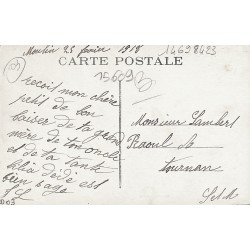 Moulin 25 fevrier 1918
14698423
CARTE POSTALE
15609
reçoit mon chère
petit de bon
baiser de ta grand
mère de ton oncle
et de ta tante
dédé est
bien sage
Monsieur Lambert
Raoul
tournan
S et M
D03